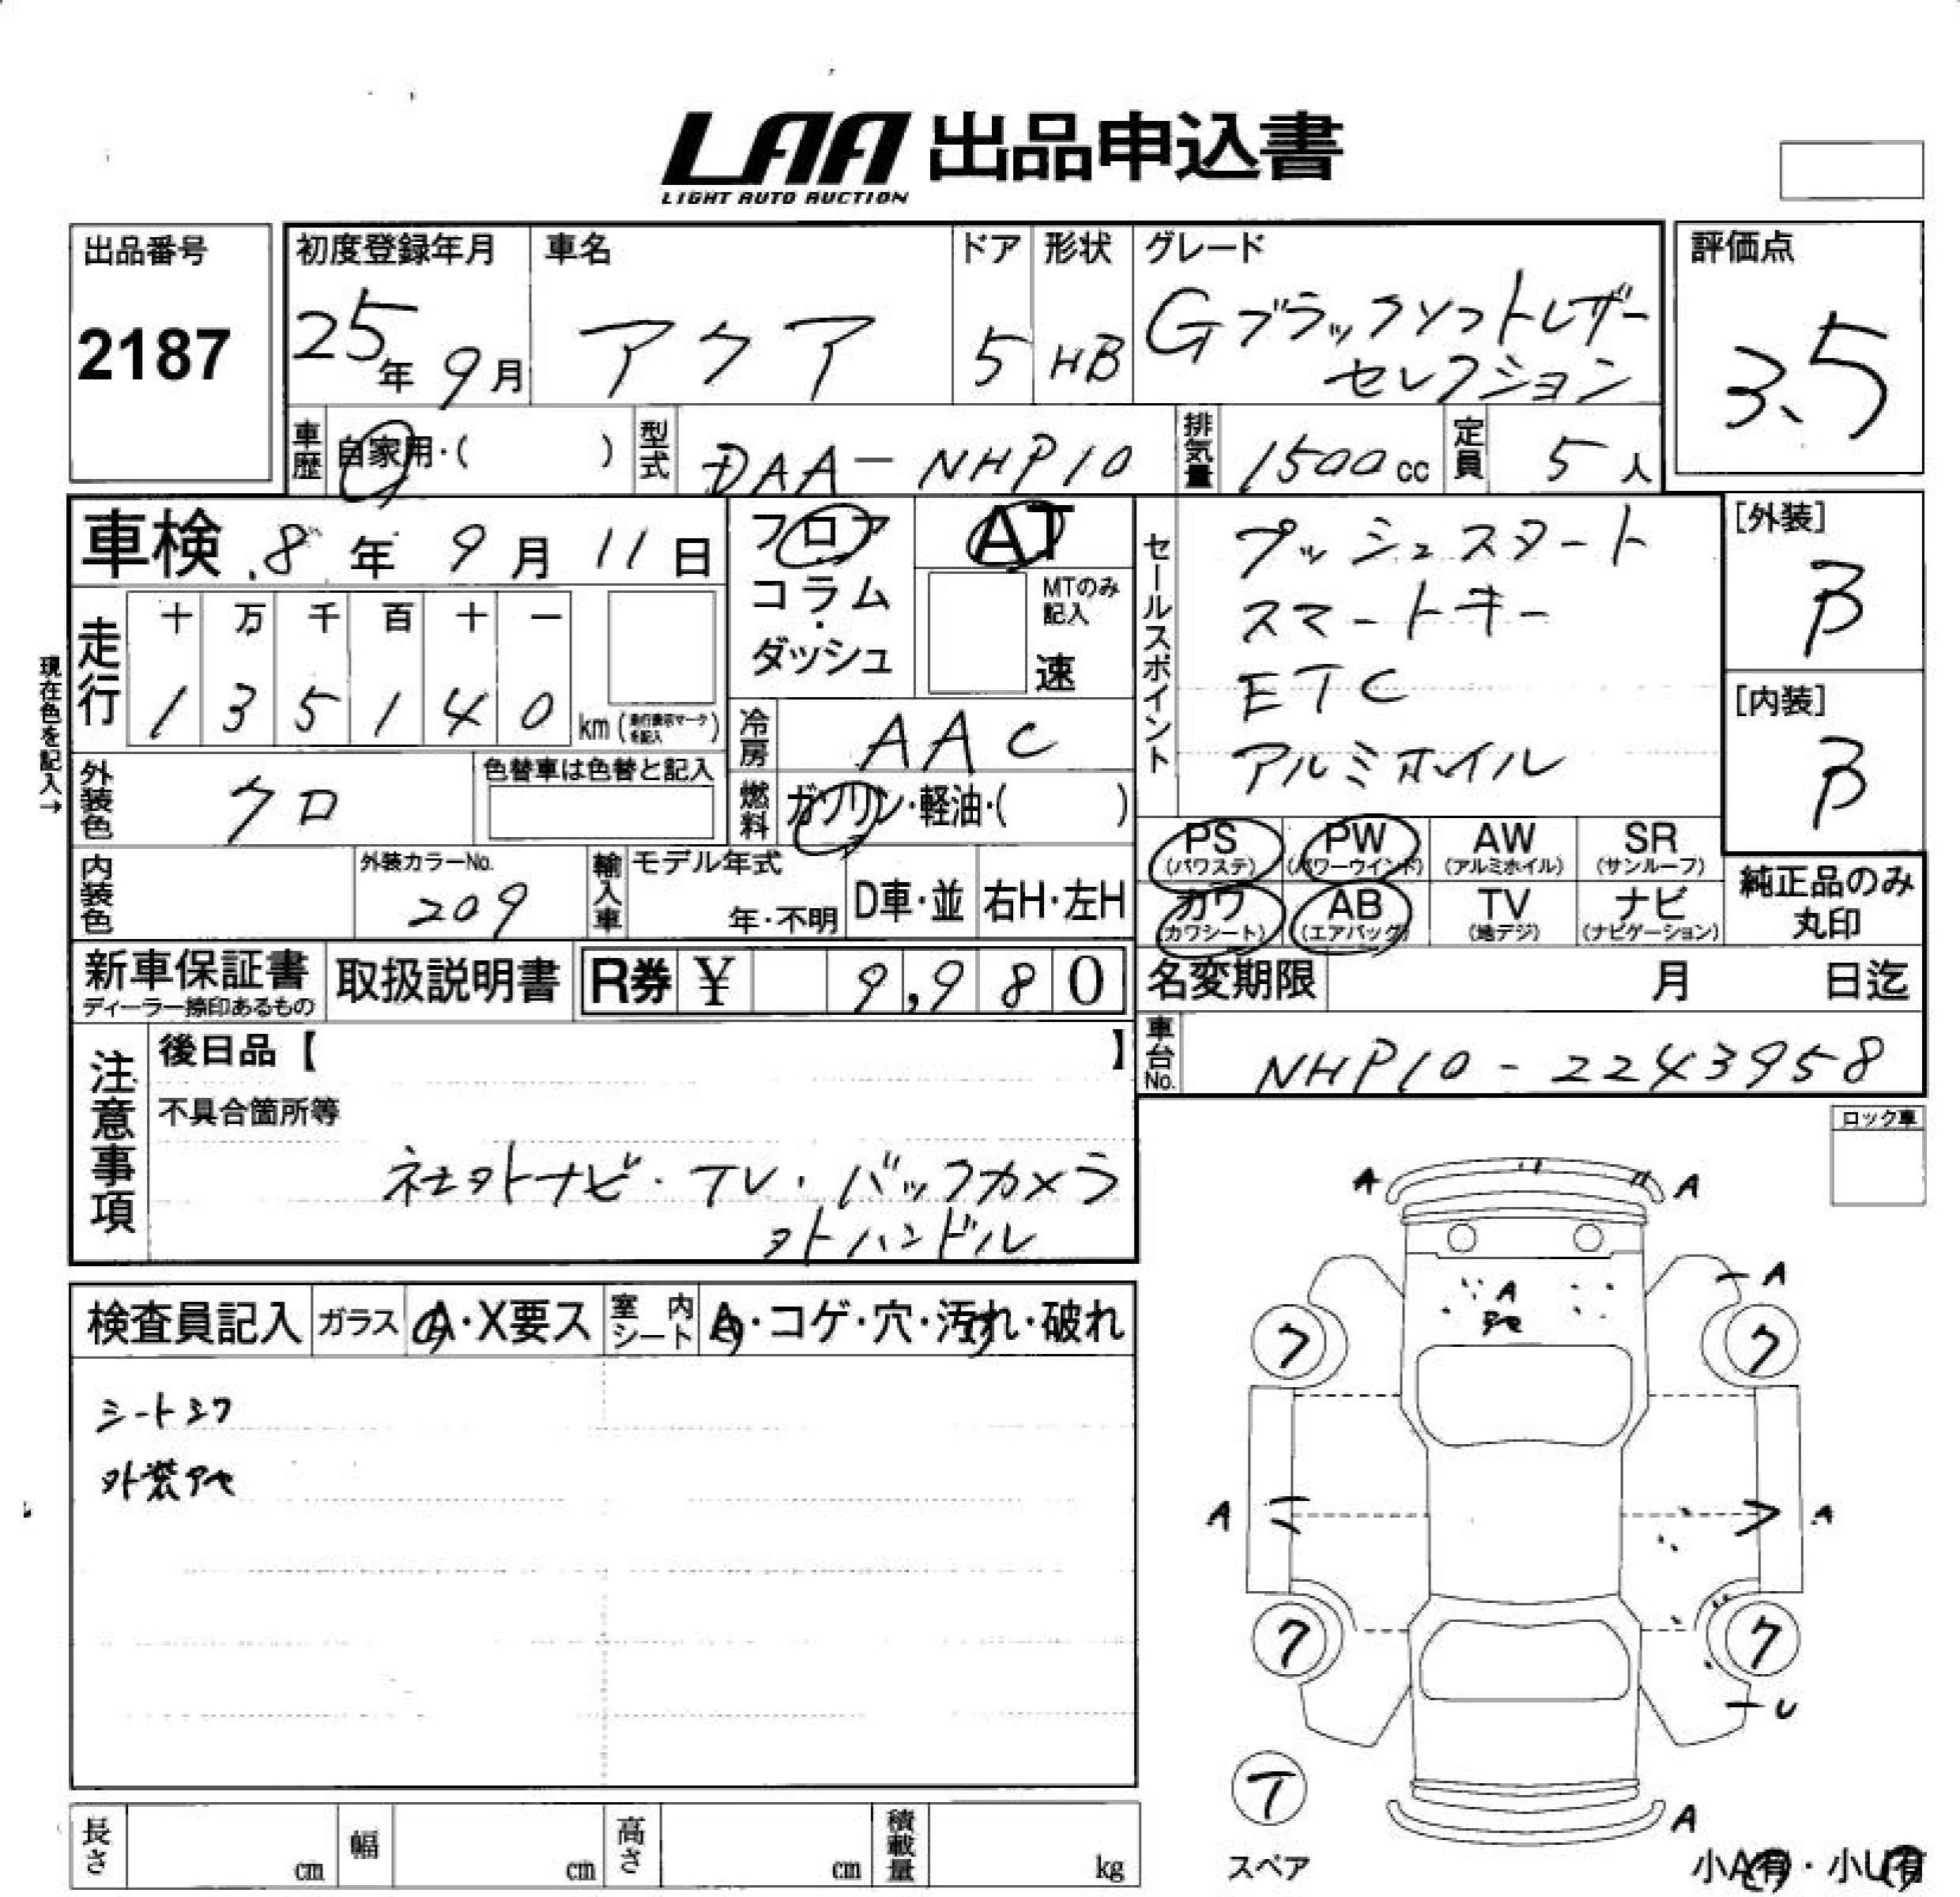 LAA 出品申込書
LIGHT AUTO AUCTION
出品番号
2187
初度登録年月
25年 9月
車名
アクア
ドア
5
形状
HB
グレード
Gブラックソフトレザー
セレクション
評価点
3.5
車歴
自家用・( )
型式
DAA-NHP10
排気量
1500cc
定員
5人
車検 8年 9月 11日
フロア
コラム
・
ダッシュ
AT
MTのみ
記入
速
セールスポイント
プッシュスタート
スマートキー
ETC
アルミホイル
[外装]
B
[内装]
B
現在色を記入→
走行
十 万 千 百 十 一
1 3 5 1 4 0 km (走行表示マークを記入)
冷房
AAC
外装色
クロ
色替車は色替と記入
燃料
ガソリン・軽油・( )
PS (パワステ)
PW (パワーウインド)
AW (アルミホイル)
SR (サンルーフ)
カワ (カワシート)
AB (エアバッグ)
TV (地デジ)
ナビ (ナビゲーション)
純正品のみ
丸印
内装色
外装カラーNo.
209
輸入車
モデル年式
年・不明
D車・並
右H・左H
新車保証書
ディーラー捺印あるもの
取扱説明書
R券 ¥ 9,980
名変期限 月 日迄
車台No.
NHP10-2243958
注意事項
後日品【 】
不具合箇所等
社外ナビ・TV・バックカメラ
外ハンドル
ロック車
検査員記入
ガラス
A・X要ス
室内シート
A・コゲ・穴・汚れ・破れ
シートスワ
外装アセ
A
A
A
A
アセ
ク
ク
A
A
ク
ク
U
T
スペア
A
小A有・小U有
長さ cm
幅 cm
高さ cm
積載量 kg